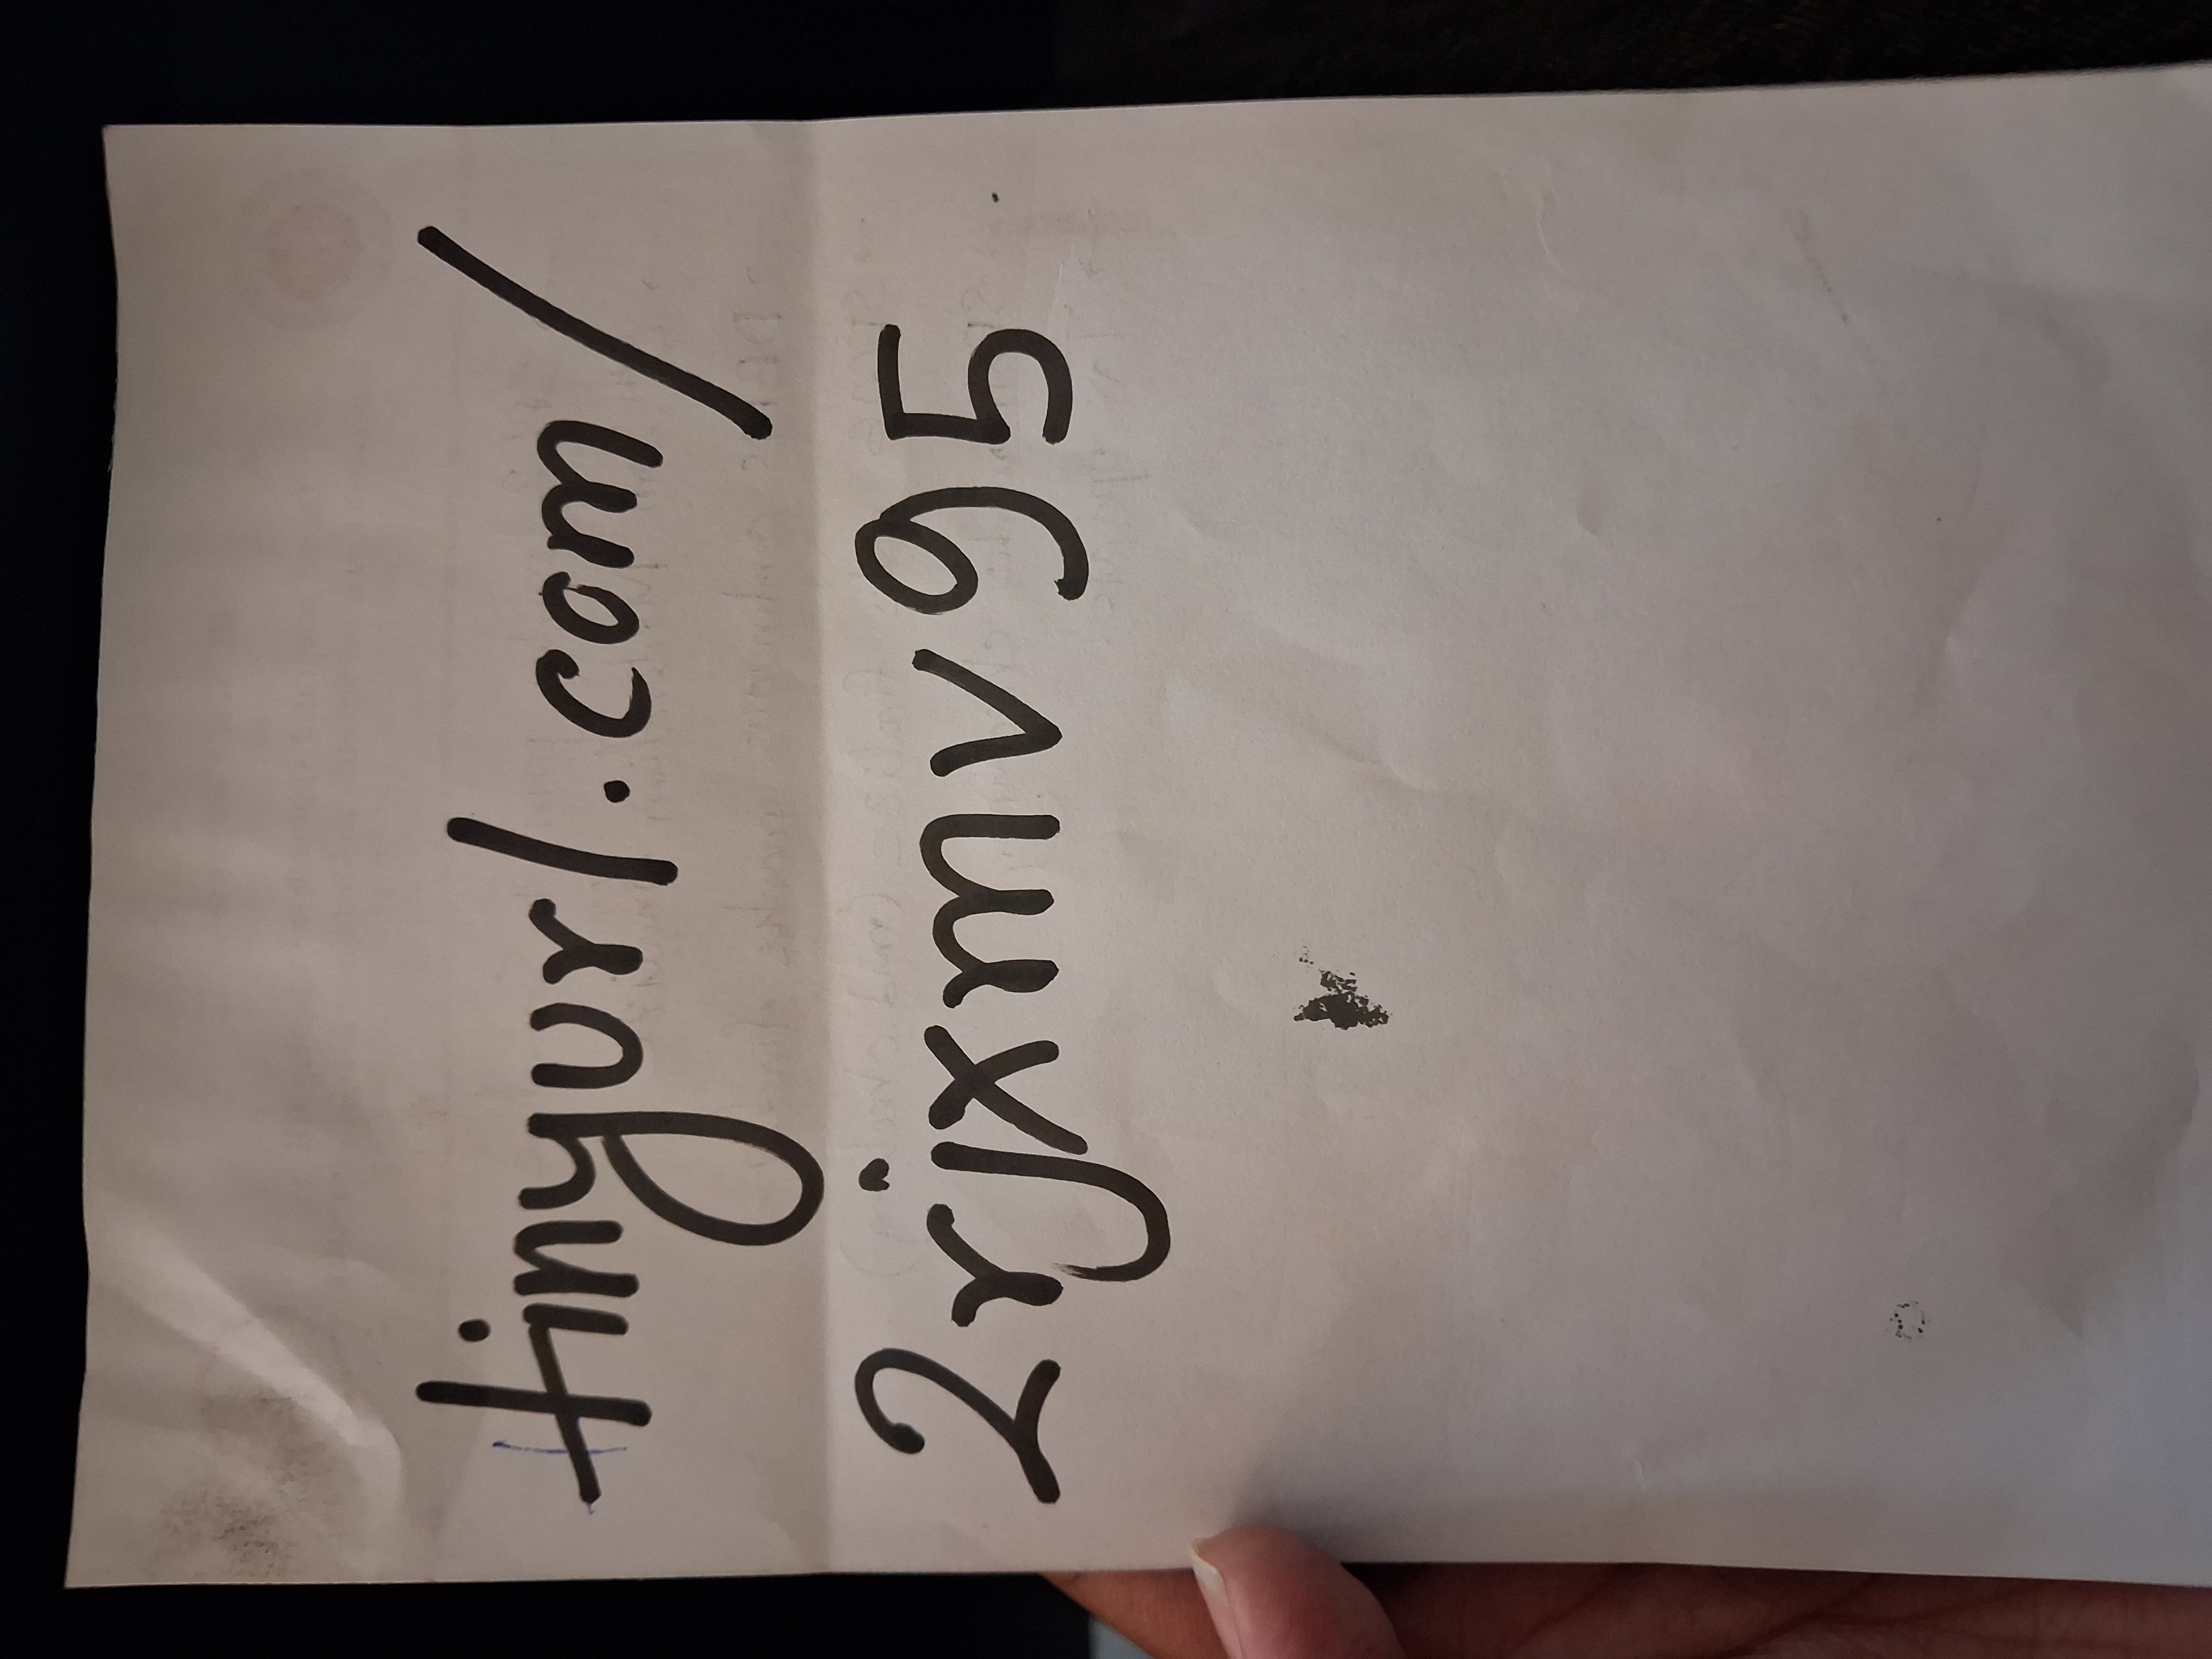 tinyurl.com/
2rjxmv95